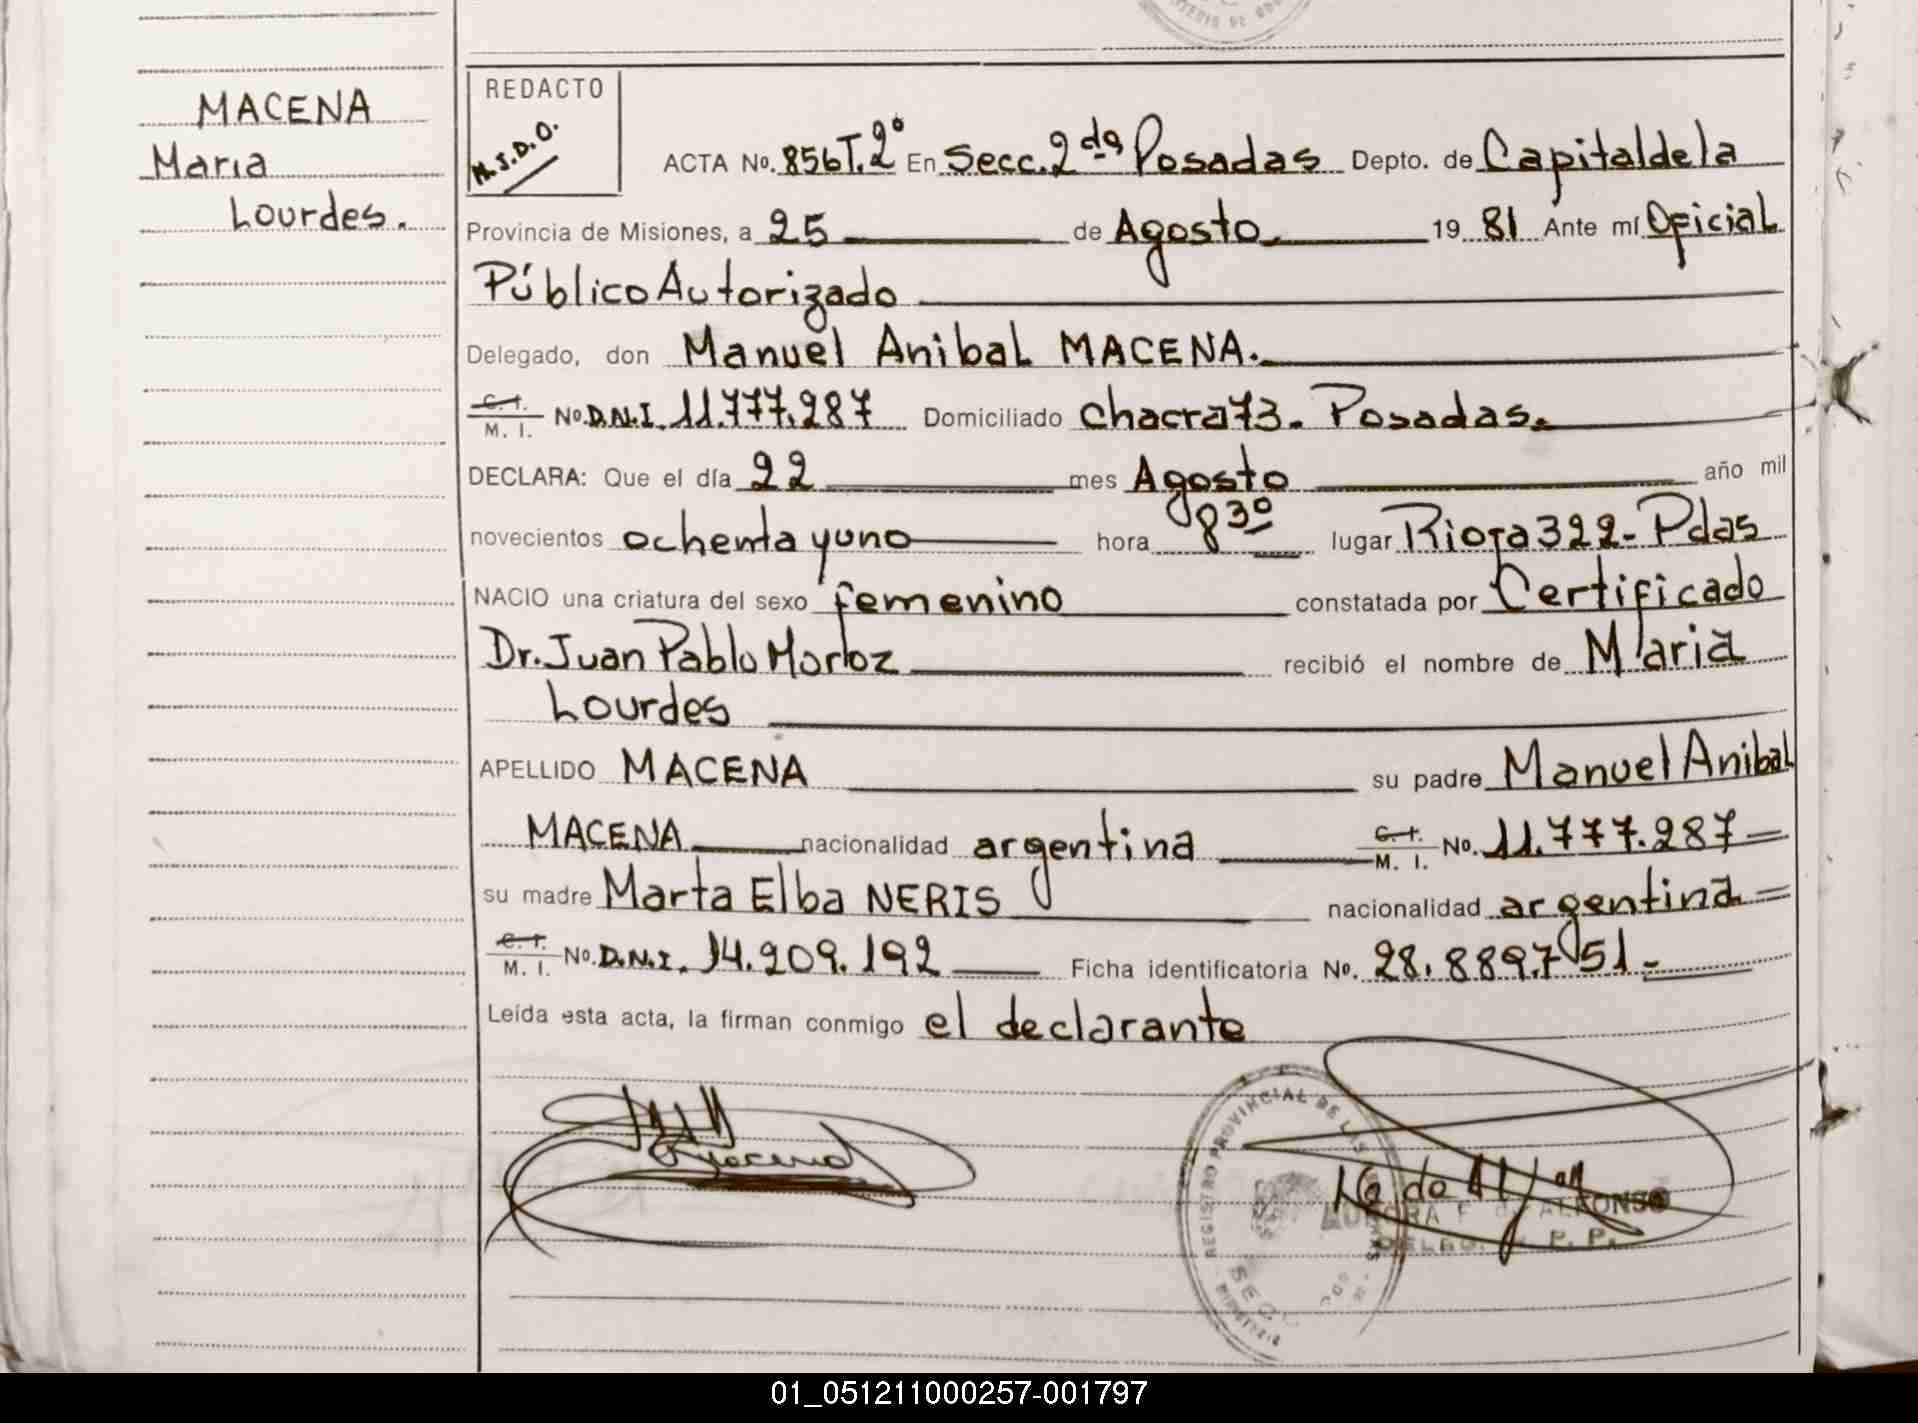 MACENA
Maria
Lourdes.
REDACTO
M.S.D.O.
ACTA No. 856T.2º En Secc.2da Posadas Depto. de Capital de la
Provincia de Misiones, a 25 de Agosto 19 81 Ante mí Oficial
Público Autorizado
Delegado, don Manuel Anibal MACENA.
C. I. M. I. No. D.N.I. 11.777.287 Domiciliado Chacra 73. Posadas.
DECLARA: Que el día 22 mes Agosto año mil
novecientos ochenta y uno hora 8 30 lugar Rioja 322- Pdas
NACIO una criatura del sexo femenino constatada por Certificado
Dr. Juan Pablo recibió el nombre de Maria
Lourdes
APELLIDO MACENA su padre Manuel Anibal
MACENA nacionalidad argentina C. I. M. I. No. 11.777.287=
su madre Marta Elba NERIS nacionalidad argentina=
C. I. M. I. No. D.N.I. 14.209.192 Ficha identificatoria No. 28.889.751-
Leída esta acta, la firman conmigo el declarante
REGISTRO PROVINCIAL DE LAS
ALFONSO
P. P.
01_051211000257-001797